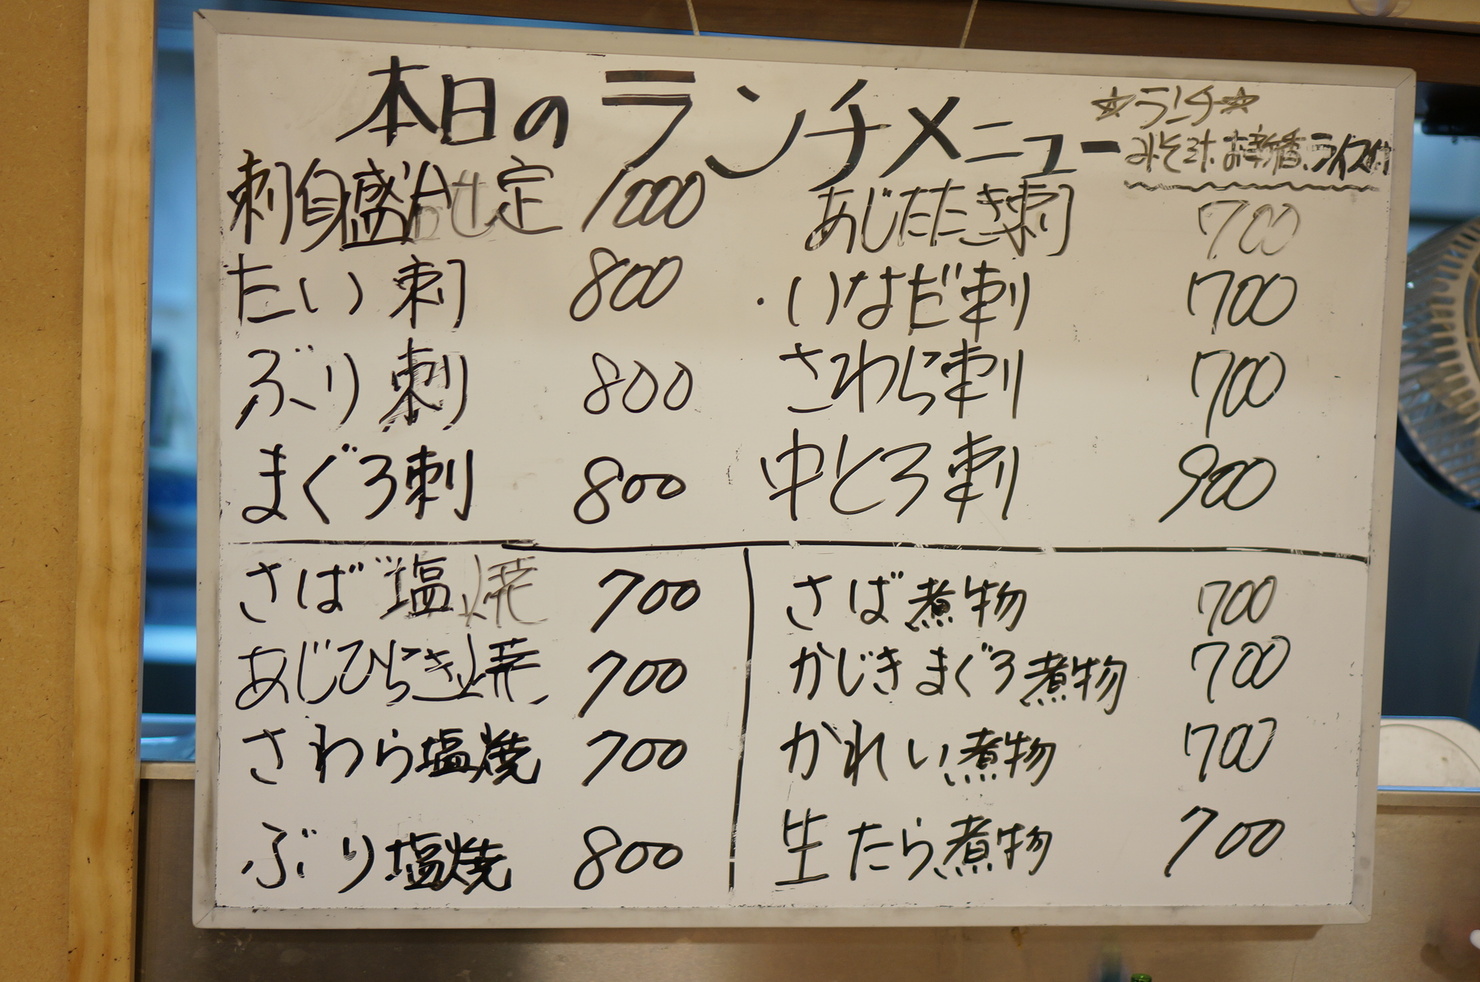 本日のランチメニュー
☆ランチ☆
みそ汁、お新香、ライス付
刺身盛合せ定 1000
たい刺 800
ぶり刺 800
まぐろ刺 800
あじたたき刺 700
いなだ刺 700
さわら刺 700
中とろ刺 900
さば塩焼 700
あじひらき焼 700
さわら塩焼 700
ぶり塩焼 800
さば煮物 700
かじきまぐろ煮物 700
かれい煮物 700
生たら煮物 700